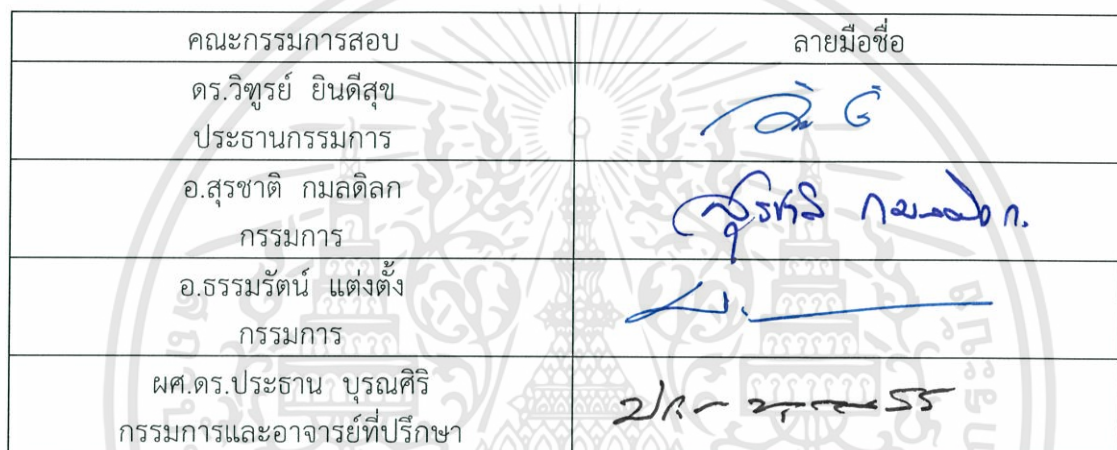 คณะกรรมการสอบ ลายมือชื่อ
ดร.วิฑูรย์ ยินดีสุข
ประธานกรรมการ
อ.สุรชาติ กมลดิลก สุรชาติ กมลดิลก.
กรรมการ
อ.ธรรมรัตน์ แต่งตั้ง
กรรมการ
ผศ.ดร.ประธาน บุรณศิริ
กรรมการและอาจารย์ที่ปรึกษา